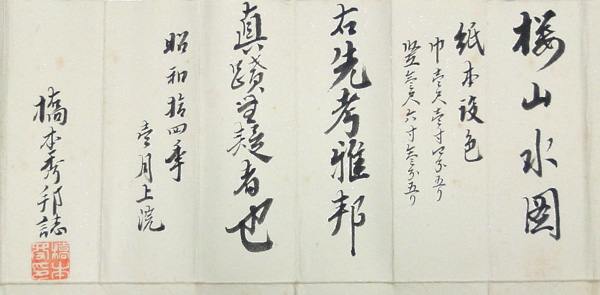 桜山水図
紙本設色
巾壱尺壱寸四分五リ
竪参尺六寸参分五リ
右先考雅邦
真蹟無疑者也
昭和拾四年
壱月上浣
橋本秀邦誌